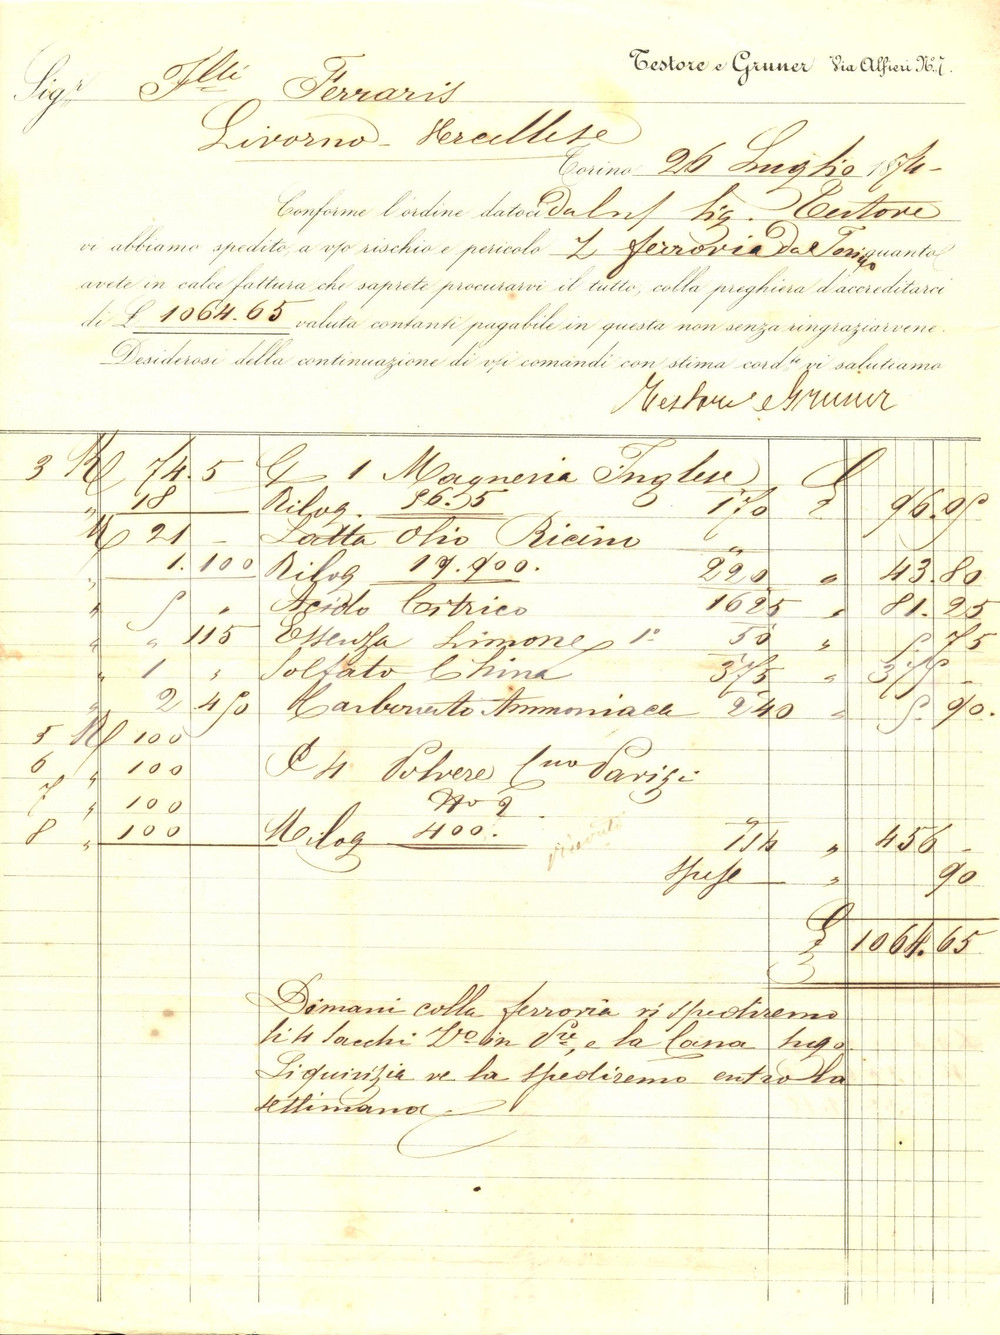 Testore e Gruner Via Alfieri No. 7.
Sigr. Flli Ferraris
Livorno Vercellese
Torino 26 Luglio 1874
Conforme l'ordine datoci dal ns/ Sig. Testore
vi abbiamo spedito, a v/o rischio e pericolo ferrovia da Torino quanto
avete in calce fattura che saprete procurarvi il tutto, colla preghiera d'accreditarci
di £ 1064.65 valuta contanti pagabile in questa non senza ringraziarvene.
Desiderosi della continuazione di v/i comandi con stima cord.te vi salutiamo
Testore e Gruner
3 K 74.5 1 Magnesia Inglese £
" 18 Kilog. 56.55 170 96.05
K 21 - Latta Olio Ricino "
" 1.100 Kilog 19.900. 220 " 43.80
" 5 " Acido Citrico 1625 " 81.25
" " 115 Essenza Limone 1a 50 " 5.75
" 1 " Solfato China 375 " 375 -
" 2 450 Carbonato Ammoniaca 240 " 5.90.
5 K 100
6 " 100 C 4 Polvere Parigi
7 " 100 No 2
8 " 100 Kilog 400. 114 " 456 -
Spese " 90
£ 1064.65
Domani colla ferrovia vi spediremo
li 4 sacchi e la Cana sugo
Liquirizia ve la spediremo entro la
settimana.